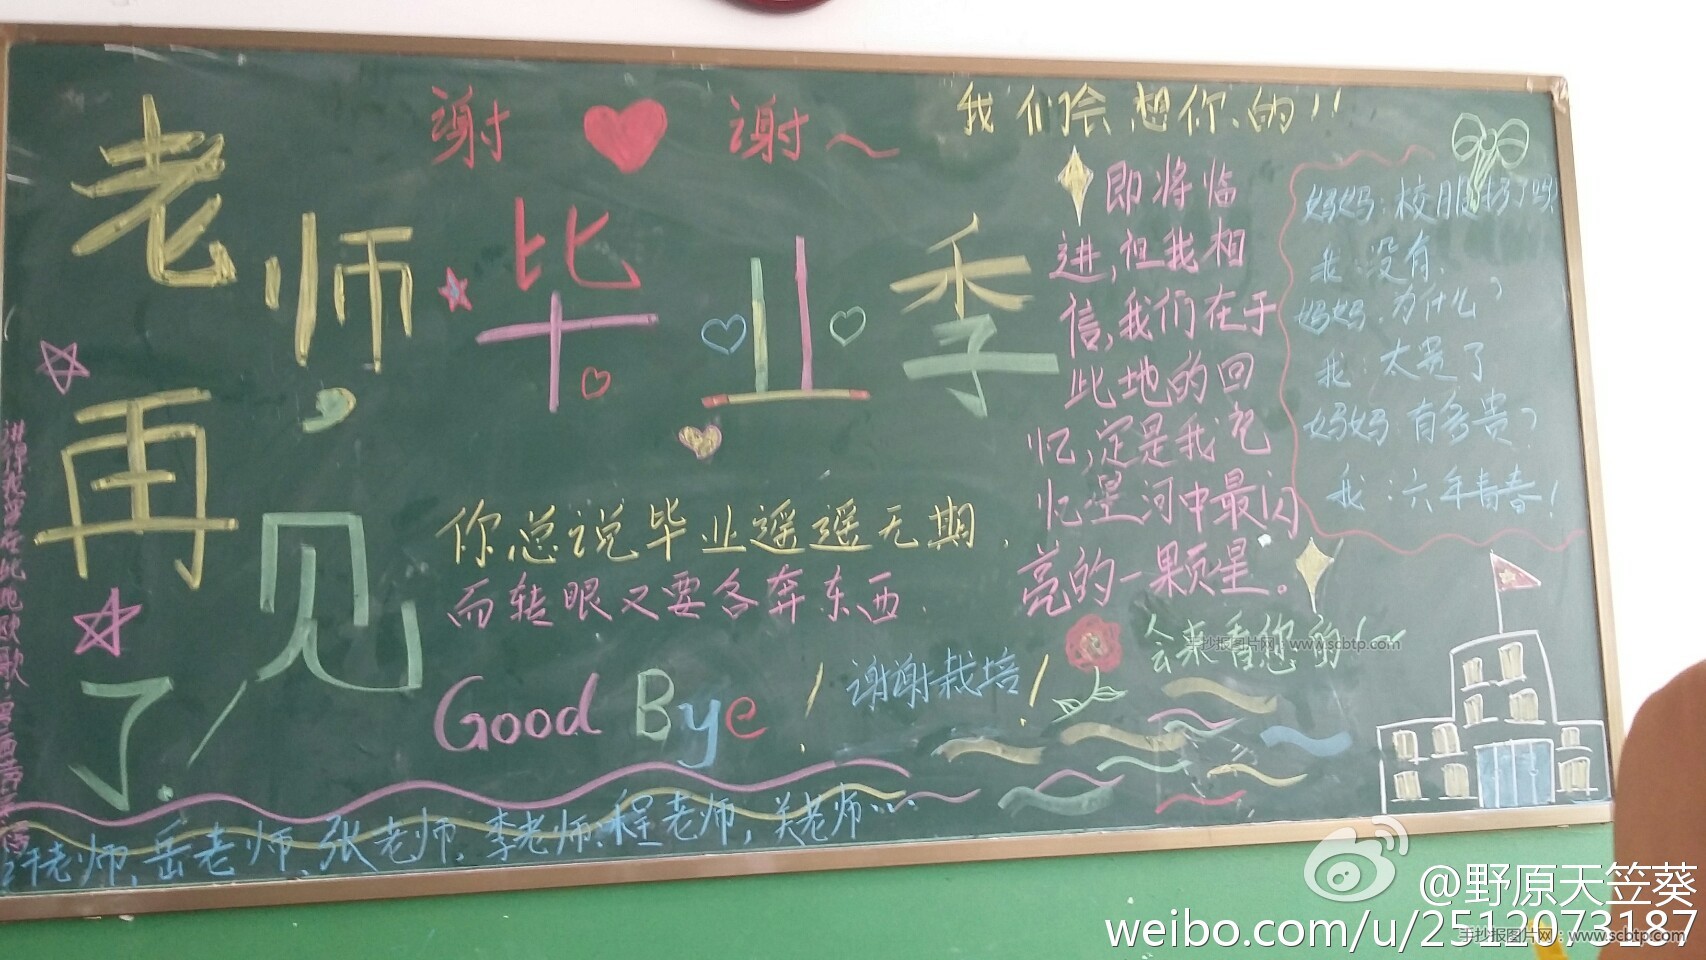 老师,
再见
了!
谢 谢~
毕业季
我们会想你的!!
即将临
进,但我相
信,我们在于
此地的回
忆,定是我记
忆星河中最闪
亮的一颗星。
妈妈:校服扔了吗?
我:没有.
妈妈:为什么?
我:太贵了
妈妈:有多贵?
我:六年青春!
你总说毕业遥遥无期,
而转眼又要各奔东西.
Good Bye!
谢谢栽培!
会来看您的!
许老师、岳老师、张老师、李老师、程老师,关老师……
手抄报图片网:www.scbtp.com
@野原天笠葵
weibo.com/u/2512073187
手抄报图片网:www.scbtp.com